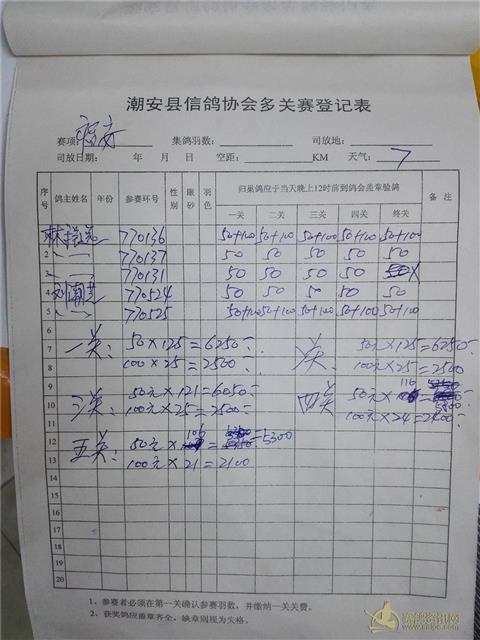 潮安县信鸽协会多关赛登记表
赛项 集鸽羽数： 司放地：
司放日期： 年 月 日 空距： KM 天气： 7
序号 鸽主姓名 年份 参赛环号 性别 眼砂 羽色 归巢鸽应于当天晚上12时前到鸽会盖章验鸽 备注
一关 二关 三关 四关 终关
1 林 770136 50+100 50+100 50+100 50+100 50+100
2 770137 50 50 50 50 50
3 770131 50 50 50 50
4 刘 770524 50 50 50 50 50
5 770525 50+100 50+100 50+100 50+100 50+100
6
7 一关： 50元×125=6250 关： 50元×125=6250
8 100元×25=2500 100元×25=2500
9
10 三关： 50元×121=6050 四关： 50元×116 5800
11 100元×25=2500 100元×24=2400
12 五关： 50元×106 =5300
13 100元×21=2100
14
15
16
17
18
19
20
1、参赛者必须在第一关确认参赛羽数，并缴纳一关关费。
2、获奖鸽应盖章齐全，缺章则视为失格。